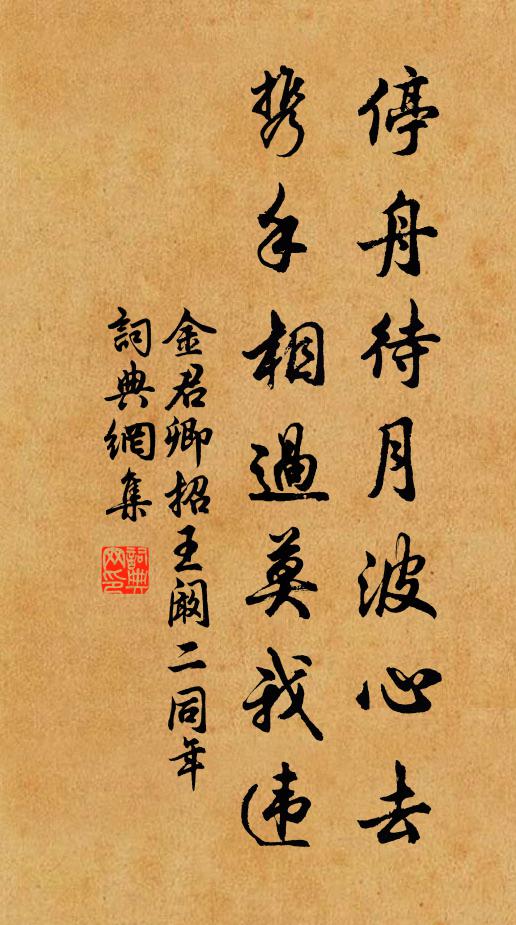 停舟待月波心去
携手相過莫我违
金君卿招王闞二同年
詞典網集
詞典網印